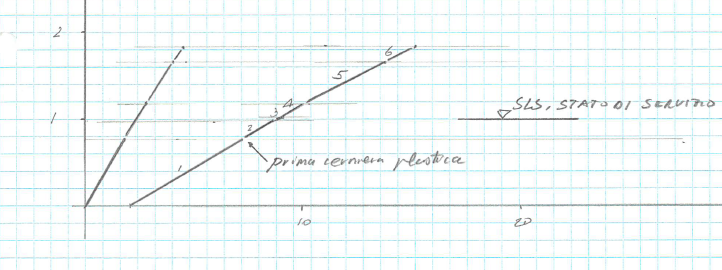 2
6
5
4
3
SLS, STATO DI SERVIZIO
1
2
prima cerniera plastica
1
10
20